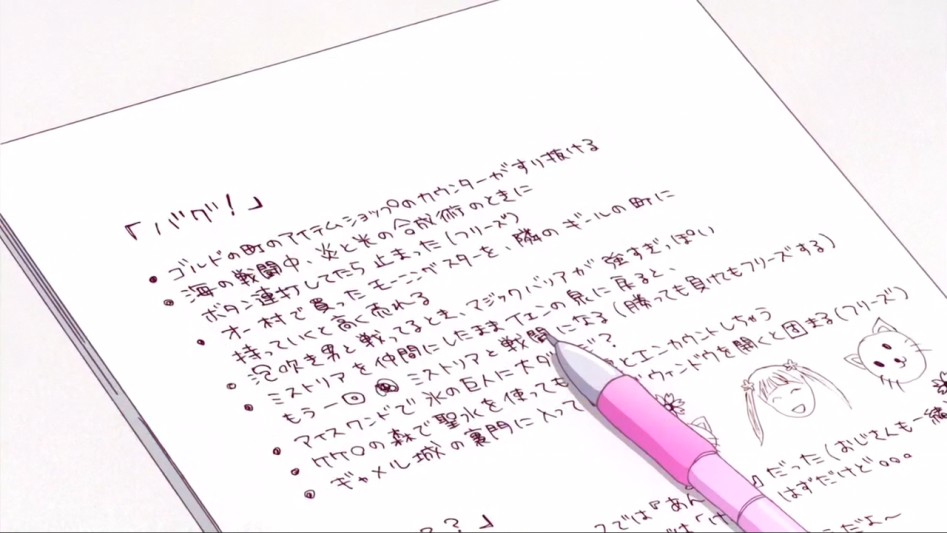 「バグ!」
• ゴルドの町のアイテムショップのカウンターがすり抜ける
• 海の戦闘中、炎と光の合成術のときに
ボタン連打してたら止まった(フリーズ)
• オー村で買ったモーニングスターを、隣のギールの町に
持っていくと高く売れる
• 泡吹き男と戦ってるとき、マジックバリアが強すぎっぽい
• ミストリアを仲間にしたままイエンの見に戻ると、
もう一回 ミストリアと戦闘になる(勝っても負けてもフリーズする)
• アイスワンドで氷の巨人に大ダ だ?
• ケケ〇の森で聖水を使っても とエンカウントしちゃう
• ギャメル城の裏門に入って ウィンドウを開くと固まる(フリーズ)
??」
だった(おじさんも一緒
では『あん はずだけど。。。
では「は だよ〜